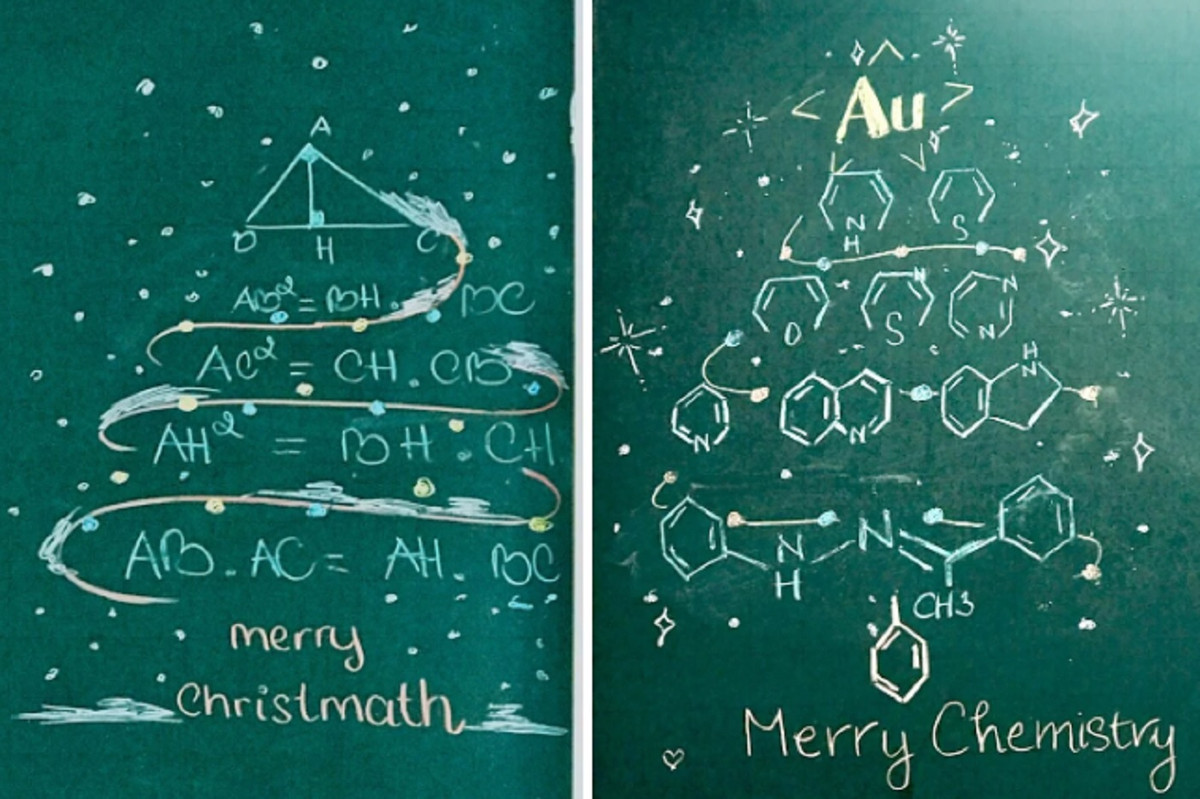 A
B H C
AB² = BH . BC
AC² = CH . CB
AH² = BH . CH
AB . AC = AH . BC
merry
Christmath
Au
N
H
S
O
S
N
N
N
N
N
H
N
H
N
CH3
Merry Chemistry